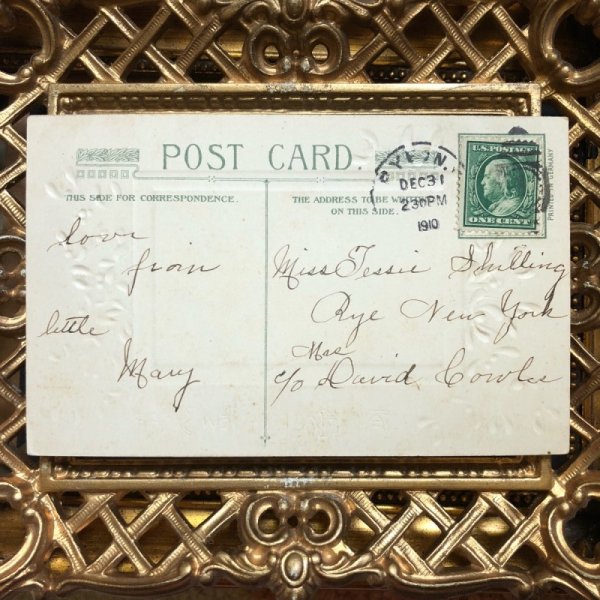 POST CARD.
THIS SIDE FOR CORRESPONDENCE.
THE ADDRESS TO BE
ON THIS SIDE.
DEC 31
2 30 PM
1910
U.S. POSTAGE
ONE CENT
love
from
little
Mary
Miss Tessie Shilling
Rye New York
Mrs
c/o David Cowles